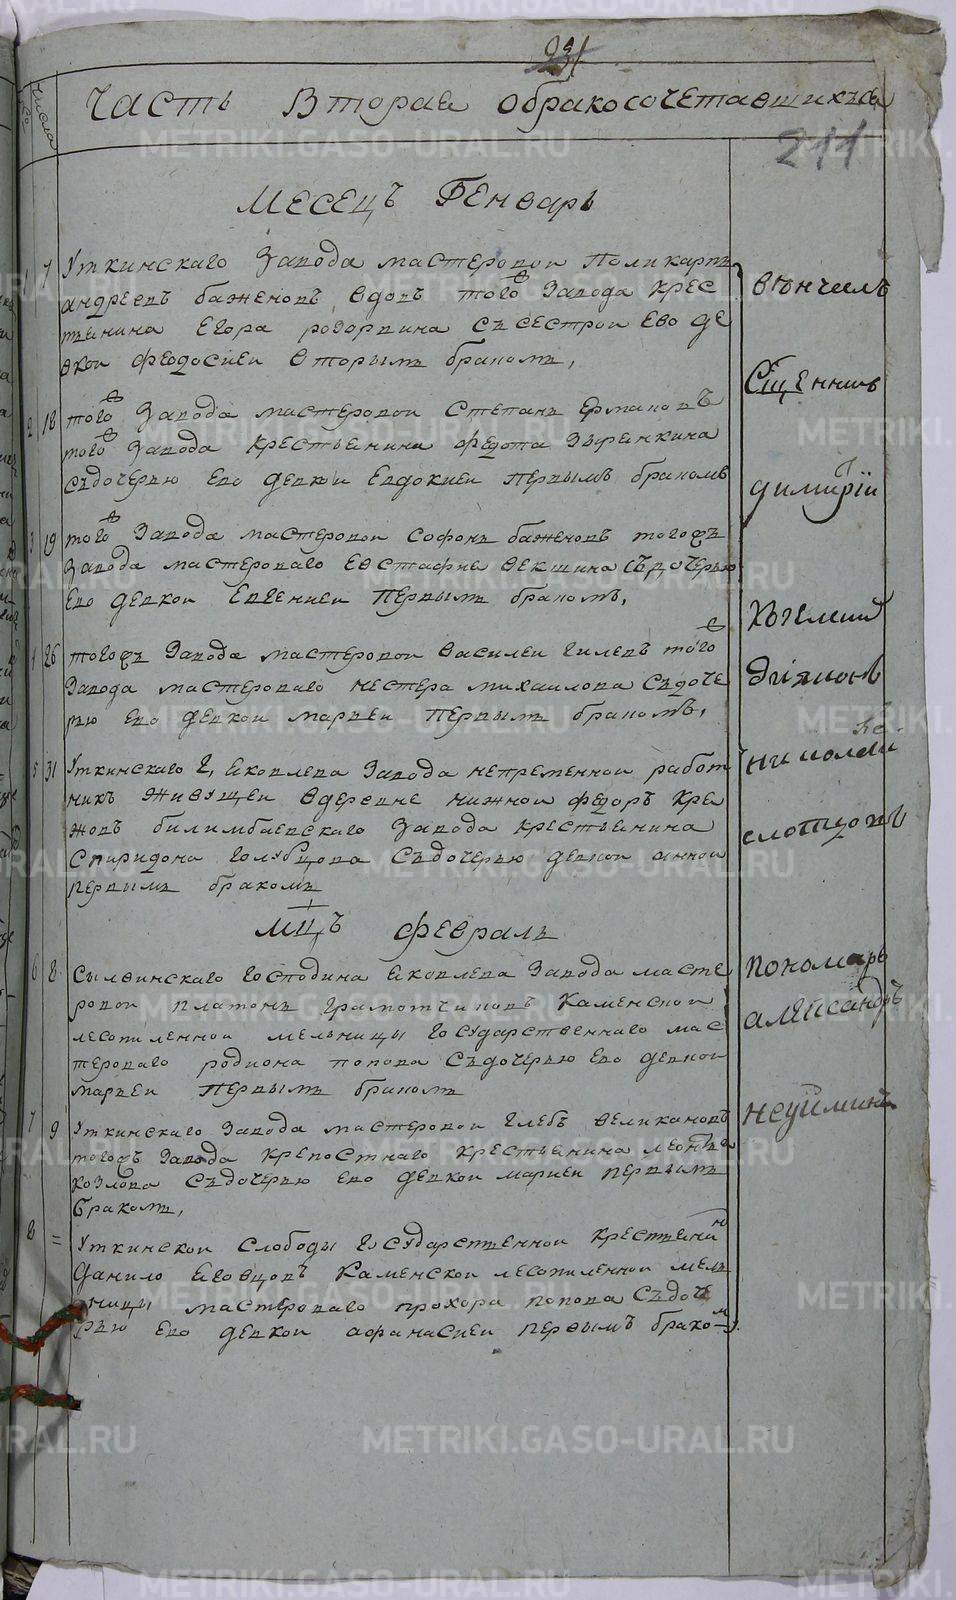 231
Числа
Часть Вторая обракосочетавшихъся
211
Месецъ Генварь
1 7 Уткинскаго Завода мастеровои Поликарпъ
андреевъ баженовъ вдовъ того Завода крес
тьянина Егора сьсестрои Ево де
вкои феодосиеи вторымъ бракомъ,
2 18 того Завода мастеровои Степанъ Ермаковъ
того Завода крестьянина федота Зырянкина
сьдочерью Ево девкои Евдокиеи первымъ бракомъ
3 19 того Завода мастеровои Софонъ баженовъ тогожъ
Завода мастероваго Евстафие векшина сьдочерью
Ево девкои Евгениеи первымъ бракомъ,
4 26 тогожъ Завода мастеровои василеи гилевъ того
Завода мастероваго нестера михаилова сьдоче
рью Ево девкои марьеи первымъ бракомъ,
5 31 Уткинскаго Г, яковлева Завода непременнои работ
никъ живущеи вдеревне нижнои федоръ кре
жовъ билимбаевскаго Завода крестьянина
Спиридона голубцова сьдочерью девкои аннои
первымъ бракомъ
мцъ февраль
6 8 Сылвинскаго господина яковлева Завода масте
ровои платонъ грамотчиковъ Каменскои
лесопиленнои мельницы государственнаго мас
тероваго родиона попова сьдочерью Ево девкои
марьеи первымъ бракомъ
7 9 Уткинскаго Завода мастеровои глебъ великановъ
тогожъ Завода крепостнаго крестьянина леонтья
козлова сьдочерью ево девкои мариеи первымъ
бракомъ,
8 = Уткинскои слободы государственнои крестьянинъ
данило яговцовъ Каменскои лесопиленнои мель
ницы мастероваго прохора попова сьдоче
рью ево девкои афанасиеи первымъ бракомъ.
венчилъ
Сщенникъ
димитрiй
дiяконъ
николай
слотцовъ
пономарь
александръ
неуйминъ
METRIKI.GASO-URAL.RU